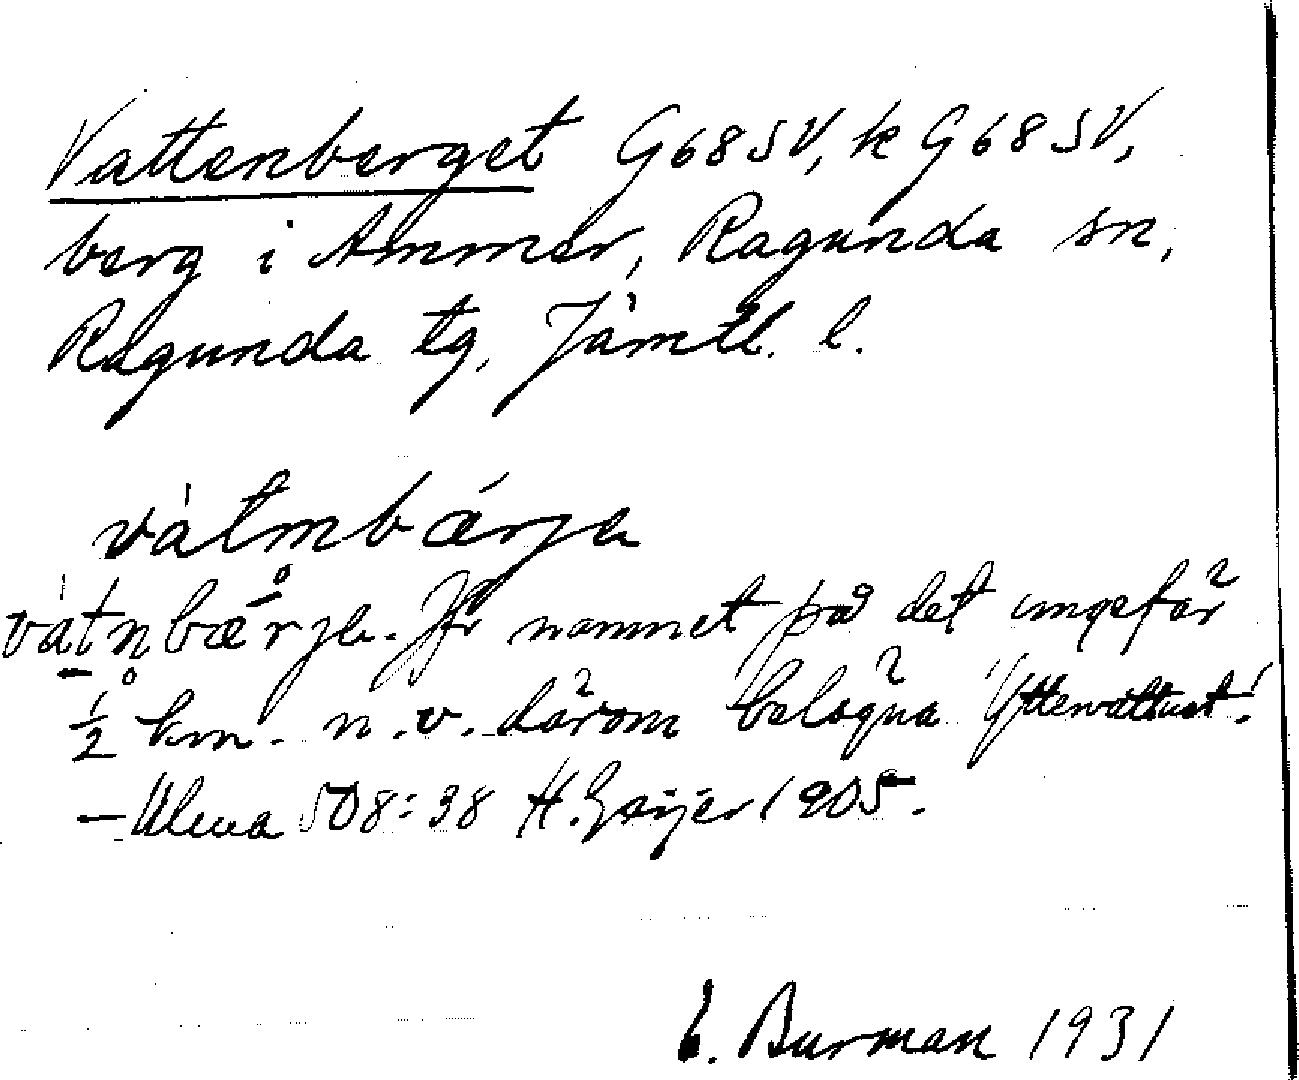 Vattenberget G68SV, k G68SV,
berg i Ammer, Ragunda sn,
Ragunda tg, Jämtl. l.
vàtmbǽrje
vàtnbærje. Jfr namnet på det ungefär
½ km. n.v. därom belägna Yttervattnet!
— Ulma 508:38 H. Geijer 1905.
E. Burman 1931